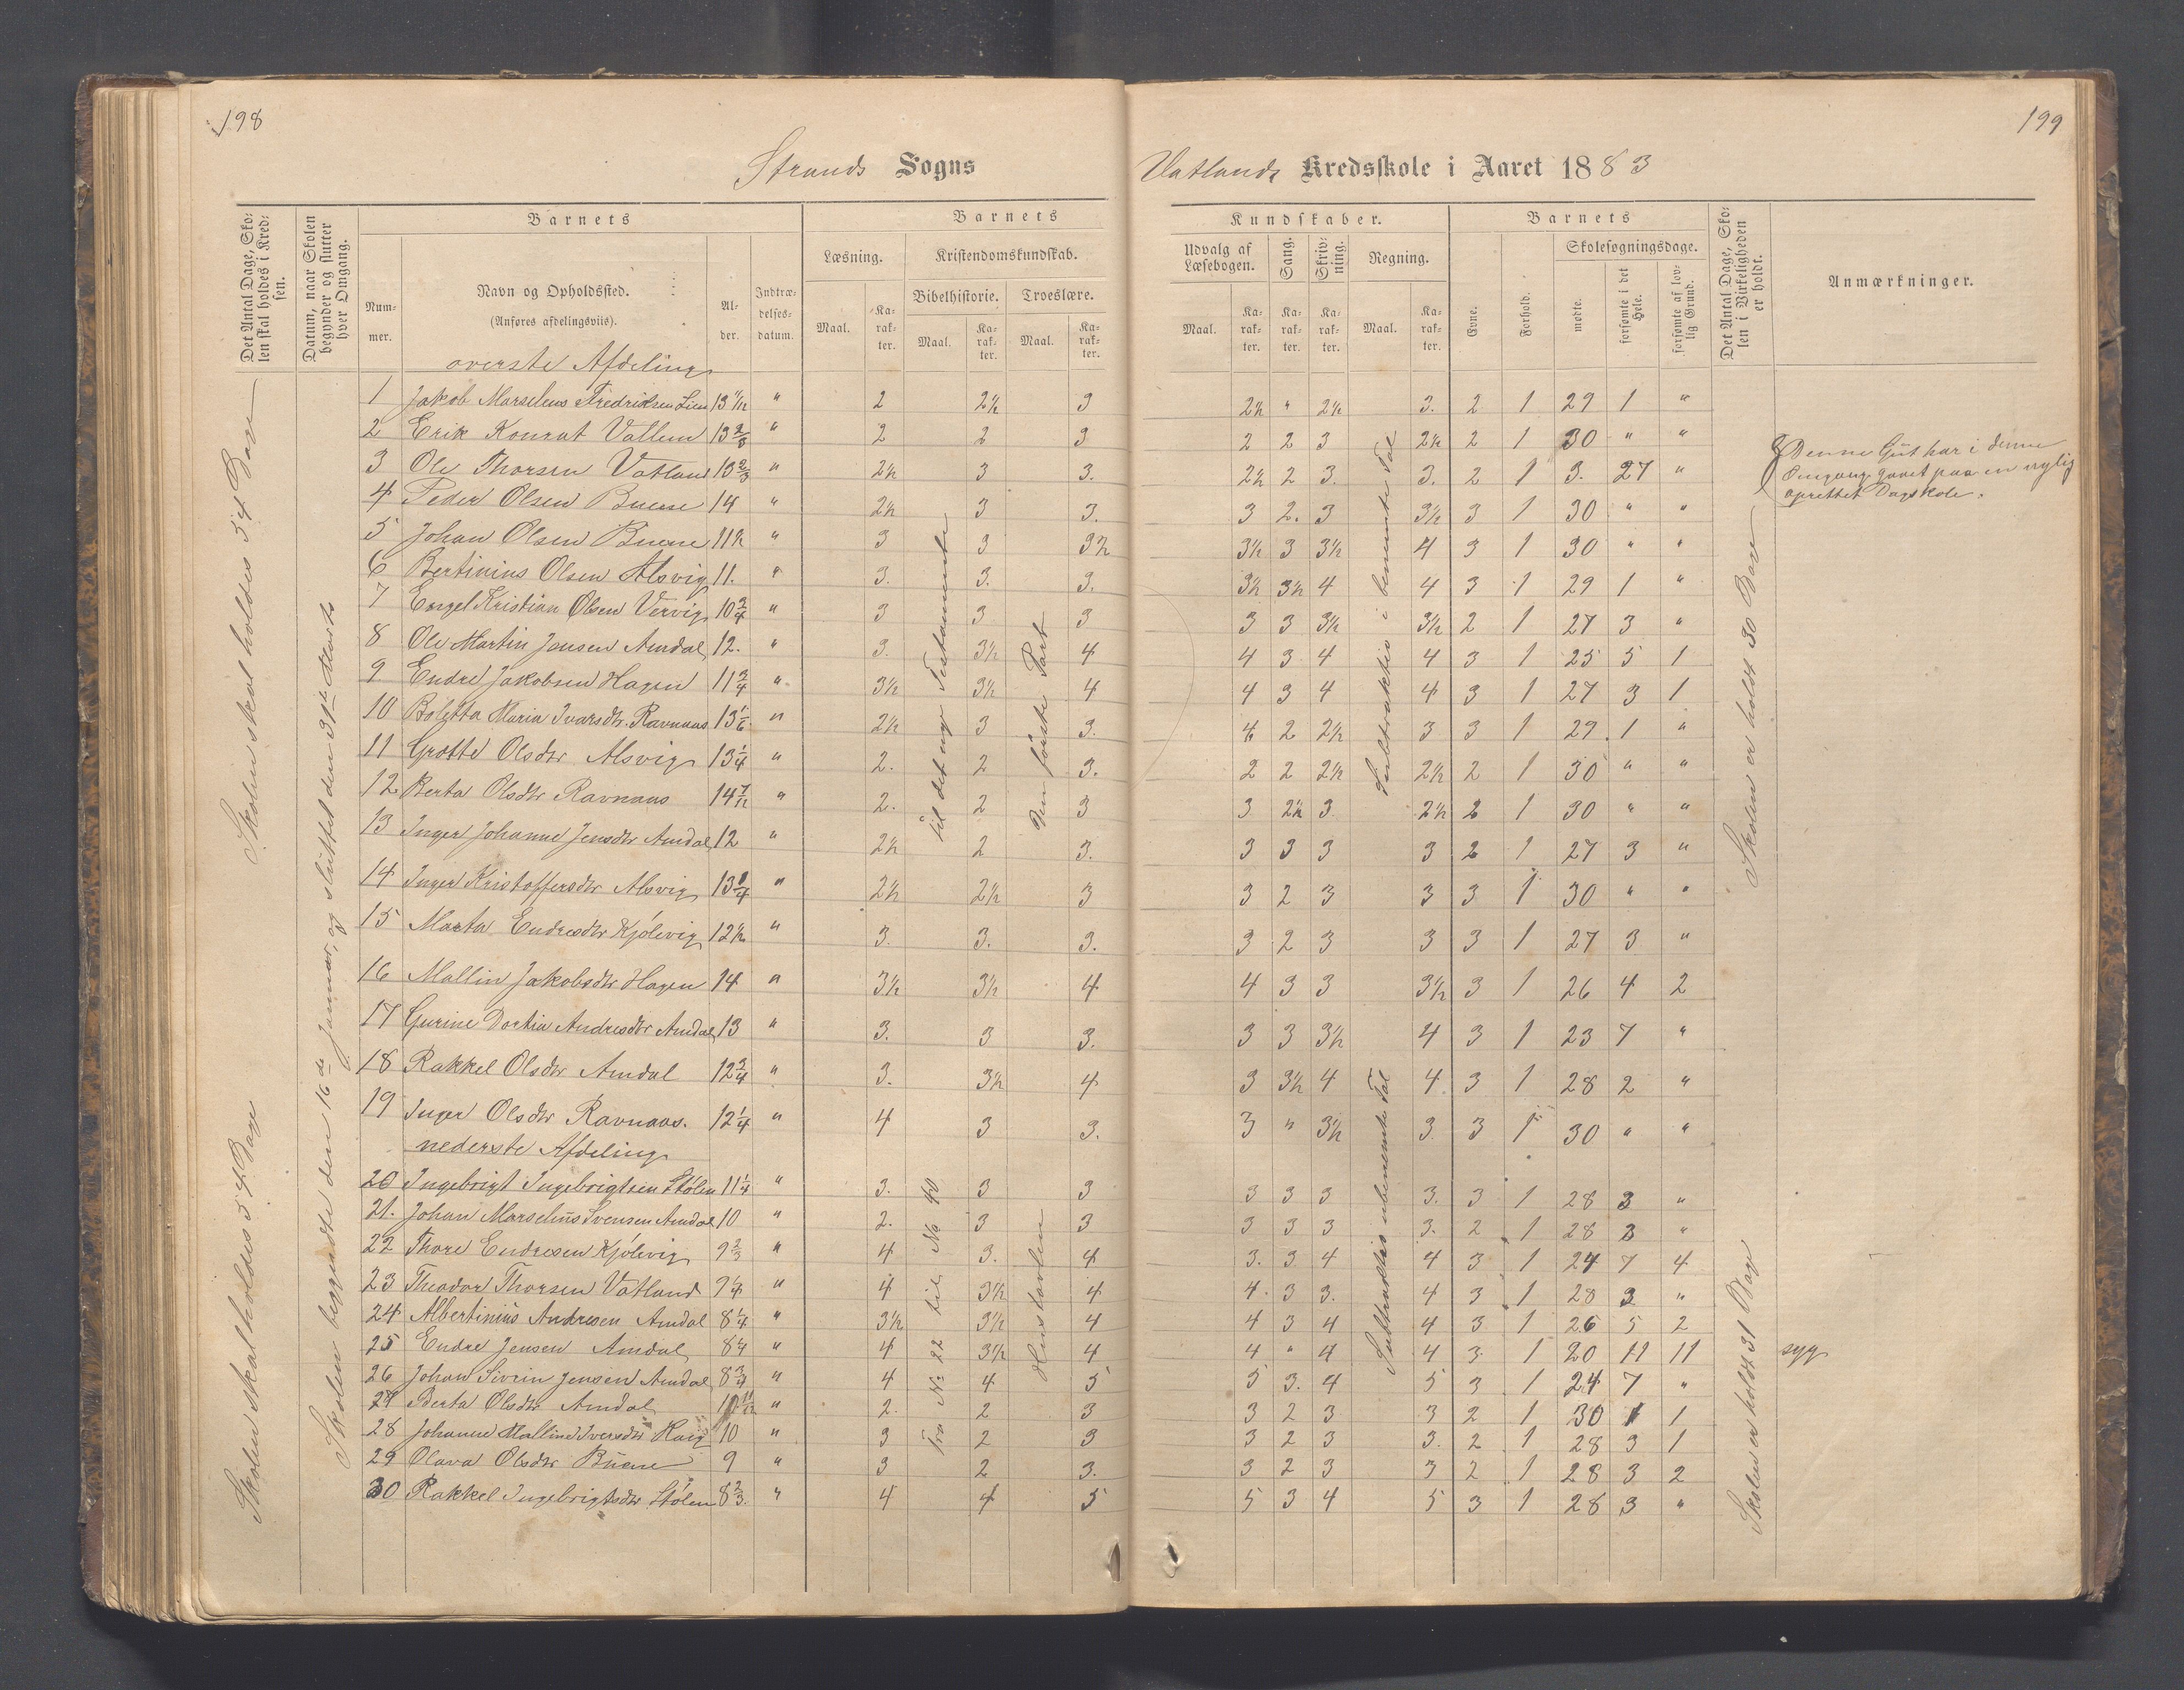 198
199
Strands Sogns
Vatlands Kredsskole i Aaret 1883
Det Antal Dage, Skolen skal holdes i Kredsen.
Datum, naar Skolen begynder og slutter hver Omgang.
Barnets
Nummer.
Navn og Opholdssted.
(Anføres afdelingsviis).
Alder.
Indtrædelsesdatum.
Barnets
Kundskaber.
Læsning.
Maal.
Karakter.
Kristendomskundskab.
Bibelhistorie.
Maal.
Karakter.
Troeslære.
Maal.
Karakter.
Udvalg af Læsebogen.
Maal.
Karakter.
Sang.
Karakter.
Skrivning.
Karakter.
Regning.
Maal.
Karakter.
Barnets
Evne.
Forhold.
Skolesøgningsdage.
mødte.
forsømte i det Hele.
forsømte af lovlig Grund.
Det Antal Dage, Skolen i Virkeligheden er holdt.
Anmærkninger.
Skolen skal holdes 54 Dage
Skolen skal holdes 54 Dage
Skolen begyndte den 16de Januar, og sluttet den 31te Marts
øverste Afdeling
1 Jakob Marselius Fredriksen Lien 13 1/12 " 2 2½ 3 2½ " 2½ 3. 2 1 29 1 "
2 Erik Konrat Vallem 13 2/3 " 2 2 3 2 2 3 2½ 2 1 30 " "
3 Ole Thorsen Vatland 13 2/3 " 2½ 3 3. 2½ 2 3. 3. 2 1 3. 27 "
4 Peder Olsen Buene 14 " 2½ 3 3. 3 2. 3 3½ 3 1 30 " "
5 Johan Olsen Buene 11½ " 3 3 3½ 3½ 3 3½ 4 3 1 30 " "
6 Bertinius Olsen Alsvig 11. " 3. 3. 3. 3½ 3½ 4 4 3 1 29 1 "
7 Engel Kristian Olsen Vervig 10 3/4 " 3 3 3 3 3 3½ 3½ 2 1 27 3 "
8 Ole Martin Jensen Amdal 12. " 3. 3½ 4 4 3 4 4 3 1 25 5 1
9 Endre Jakobsen Hagen 11 3/4 " 3½ 3½ 4 4 3 4 4 3 1 27 3 1
10 Boletta Maria Ivarsdtr. Ravnaas 13 1/6 " 2½ 3 3. 4 2 2½ 3 3 1 29. 1 "
11 Grotte Olsdtr Alsvig 13 1/4 " 2. 2 3. 2 2 2½ 2½ 2 1 30 " "
12 Berta Olsdtr Ravnaas 14 7/12 " 2. 2 3 3 2½ 3. 2½ 2 1 30 " "
13 Inger Johanne Jensdtr Amdal 12 " 2½ 2 3. 3 3 3 3 2 1 27 3 "
14 Inger Kristoffersdtr Alsvig 13 1/4 " 2½ 2½ 3 3 2 3 3 3 1 30 " "
15 Marta Endresdtr Kjølevig 12½ " 3. 3. 3. 3 2 3 3 3 1 27 3 "
16 Mallin Jakobsdtr Hagen 14 " 3½ 3½ 4 4 3 3 3½ 3 1 26 4 2
17 Gurine Dortia Andresdtr Amdal 13 " 3. 3 3. 3 3 3½ 4 3 1 23 7 "
18 Rakkel Olsdtr Amdal 12 3/4 " 3. 3½ 4 3 3½ 4 4. 3 1 28 2 "
19 Inger Olsdtr Ravnaas. 12 1/4 " 4 3 3. 3 " 3½ 3 3 1 30 " "
nederste Afdeling
20 Ingebrigt Ingebrigtsen Stølen 11 1/4 " 3. 3 3 3 3 3 3. 3 1 28 3 "
21. Johan Marselius Svensen Amdal 10 " 2. 3 3 3 3 3 3. 2 1 28 3 "
22 Thore Endresen Kjølevig 9 2/3 " 4 3. 4 3. 3 4 4 3 1 24 7 4
23 Theodor Thorsen Vatland 9 1/4 " 4 3½ 4 4. 3 3. 4 3 1 28 3 "
24 Albertinius Andresen Amdal 8 1/4 " 3½ 3½ 4 4 3 4 4 3 1 26 5 2
25 Endre Jensen Amdal 8 1/4 " 4 3½ 4 4 " 4 4 3 1 20 11 11 syg
26 Johan Sivrin Jensen Amdal 8 3/4 " 4 4 5 5 3. 4 5 3 1 24 7 "
27 Berta Olsdtr Amdal " 2. 2 3 3 2 3 3 2 1 30 1 1
28 Johanne Malline Iversdtr 10 " 3 2 3 3 2 3 3. 2 1 28 3 1
29 Olava Olsdtr Buene 9 " 3 2 3. 3 2 3 3 2 1 28 3 2
30 Rakkel Ingebrigtsdtr Stølen 8 2/3. " 4 4 5 5 3 4 5 3 1 28 3 "
til det nye Testamente
Den første Part
fra No 22 til No 40
Hustavlen
Subtraktion i benævnte Tal
Subtraktion i ubenævnte Tal
Skolen er holdt 30 Dage
Skolen er holdt 31 Dage
Denne Gut har i denne
Omgang gaaet paa en nylig
oprettet Dagskole.